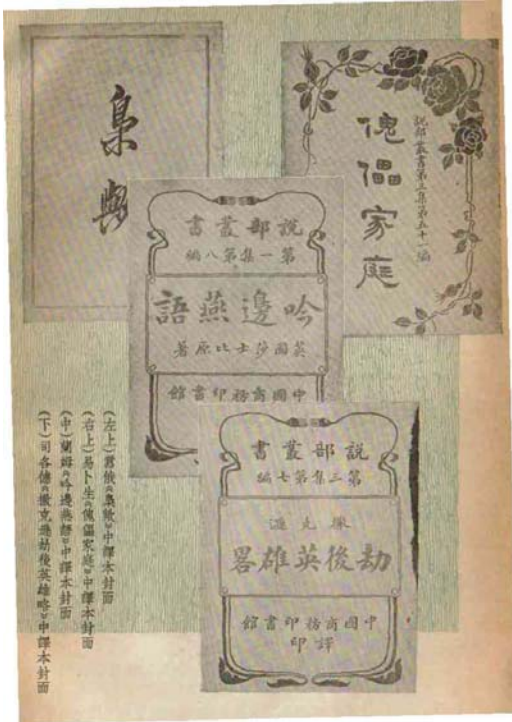 梟歟
說部叢書第三集第五十一編
傀儡家庭
說部叢書
第一集第八編
吟邊燕語
英國莎士比原著
中國商務印書館
說部叢書
第三集第七編
撒克遜
劫後英雄畧
中國商務印書館
譯印
(左上)囂俄「梟歟」中譯本封面
(右上)易卜生「傀儡家庭」中譯本封面
(中)蘭姆「吟邊燕語」中譯本封面
(下)司各德「撒克遜劫後英雄略」中譯本封面